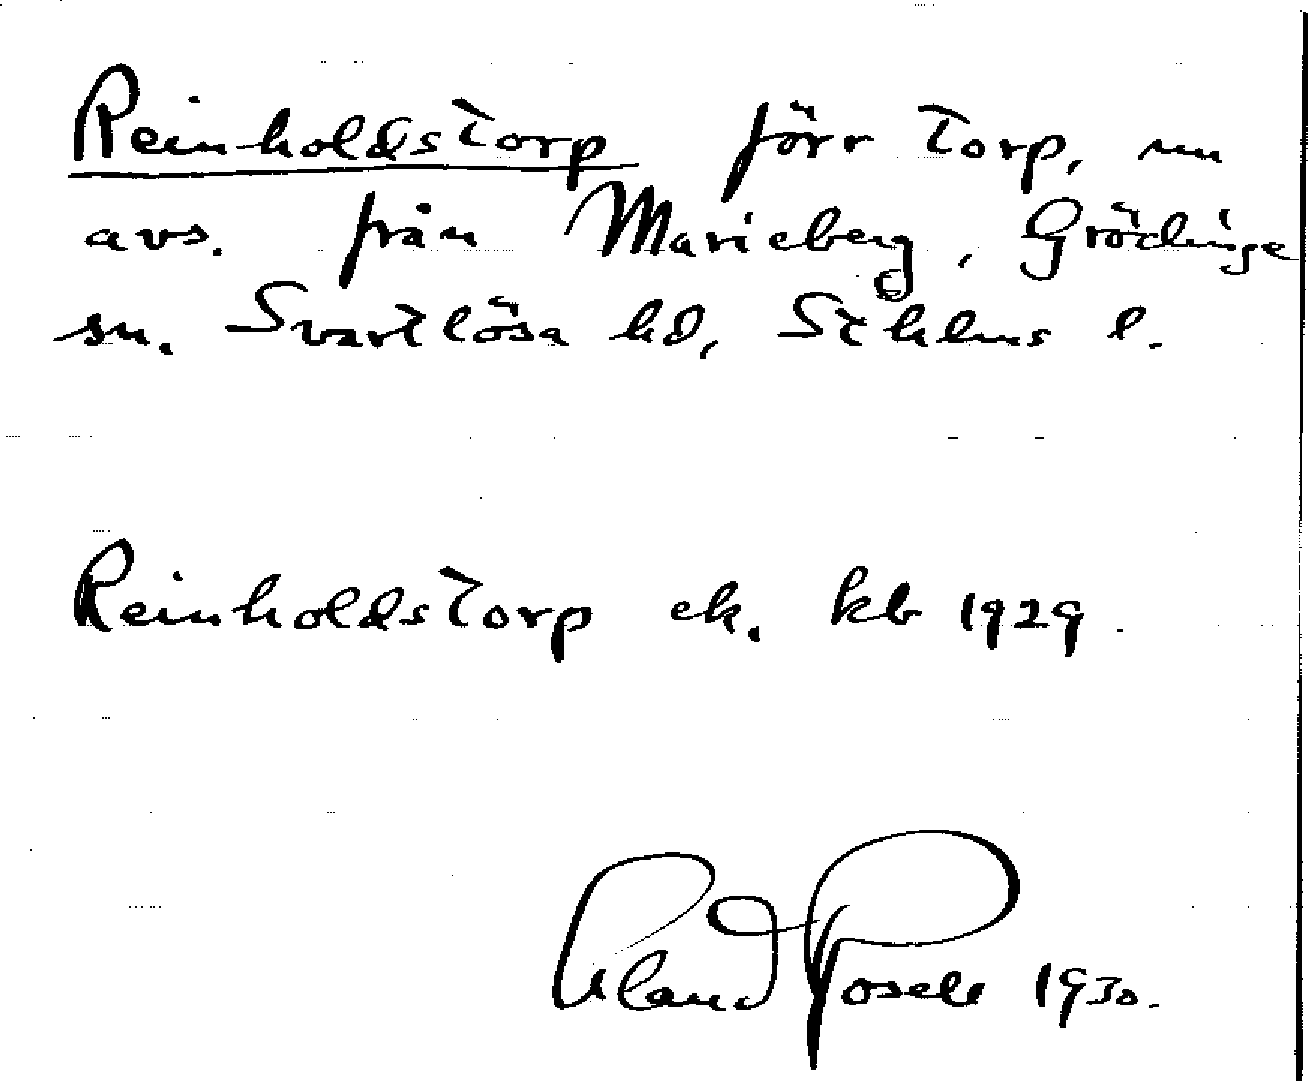 Reinholdstorp förr torp, nu
avs. från Marieberg, Grödinge
sn. Svartlösa hd, Sthlms l.
Reinholdstorp ek. kb 1929.
Posse 1930.